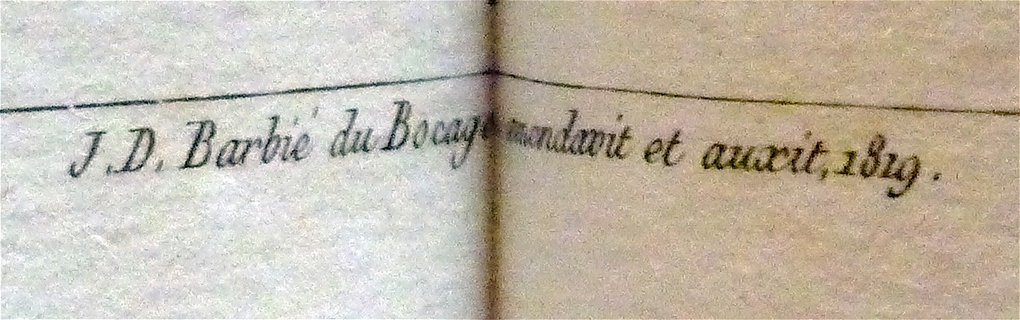 J.D. Barbié du Bocage emendavit et auxit, 1819.